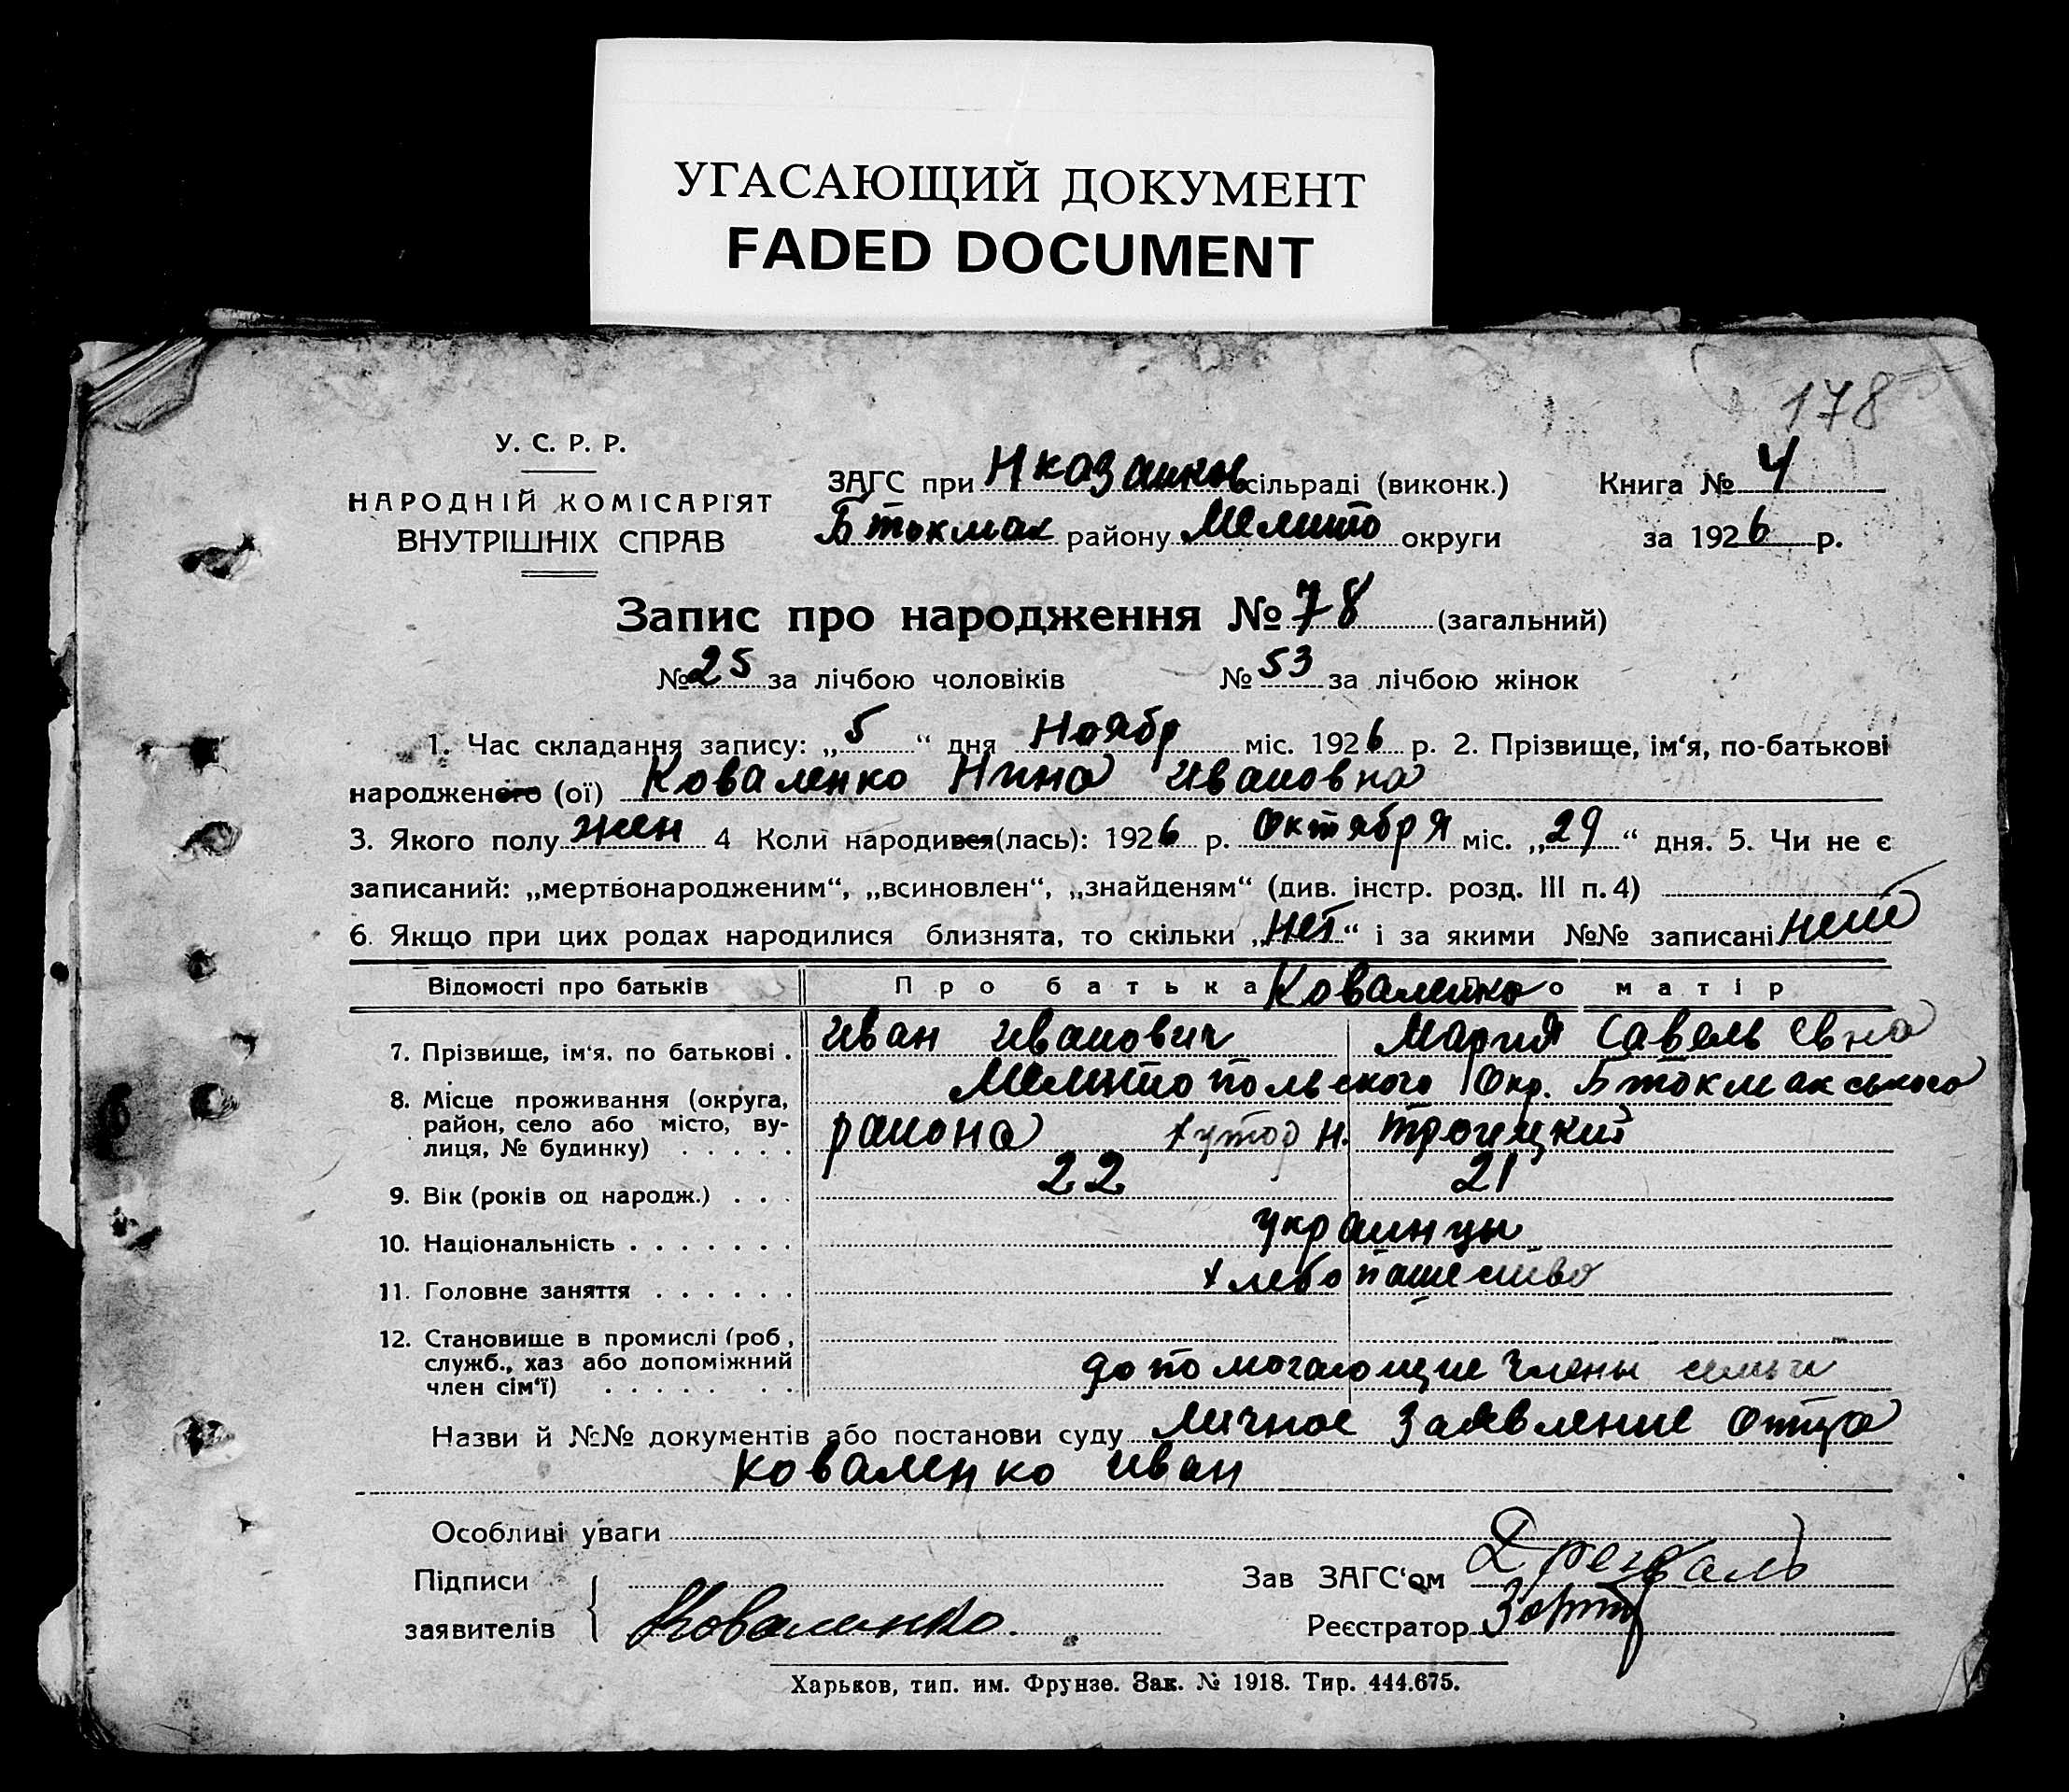 УГАСАЮЩИЙ ДОКУМЕНТ
FADED DOCUMENT
178
У. С. Р. Р.
НАРОДНІЙ КОМІСАРІЯТ
ВНУТРІШНІХ СПРАВ
ЗАГС при Нказанков сільраді (виконк.)
Бтокмак району Мелито округи
Книга № 4
за 1926 р.
Запис про народження № 78 (загальний)
№ 25 за лічбою чоловіків № 53 за лічбою жінок
1. Час складання запису: „5“ дня Ноябр міс. 1926 р. 2. Прізвище, ім‘я, по-батькові
народженого (ої) Коваленко Нина Ивановна
3. Якого полу жен 4 Коли народився(лась): 1926 р. Октября міс. „29“ дня. 5. Чи не є
записаний: „мертвонародженим“, „всиновлен“, „знайденям“ (див. інстр. розд. III п. 4)
6. Якщо при цих родах народилися близнята, то скільки „нет“ і за якими №№ записані нет
Відомості про батьків Про батька Коваленко о матір
7. Прізвище, ім‘я. по батькові . Иван Иванович Мария Савельевна
8. Місце проживання (округа, Мелитопольского Окр. Бтокмакського
район, село або місто, ву-
лиця, № будинку) . . . . . района хутор Н. Троицкий
9. Вік (років од народж.) . . . 22 21
10. Національність . . . . . . . украинцы
11. Головне заняття . . . . . . хлебопашество
12. Становище в промислі (роб,
служб., хаз або допоміжний
член сім‘ї) . . . . . . . допомогающие члены семьи
Назви й №№ документів або постанови суду личное заявление отца
Коваленко Иван
Особливі уваги
Підписи
заявителів Коваленко.
Зав ЗАГС‘ом
Реєстратор
Харьков, тип. им. Фрунзе. Зак. № 1918. Тир. 444.675.